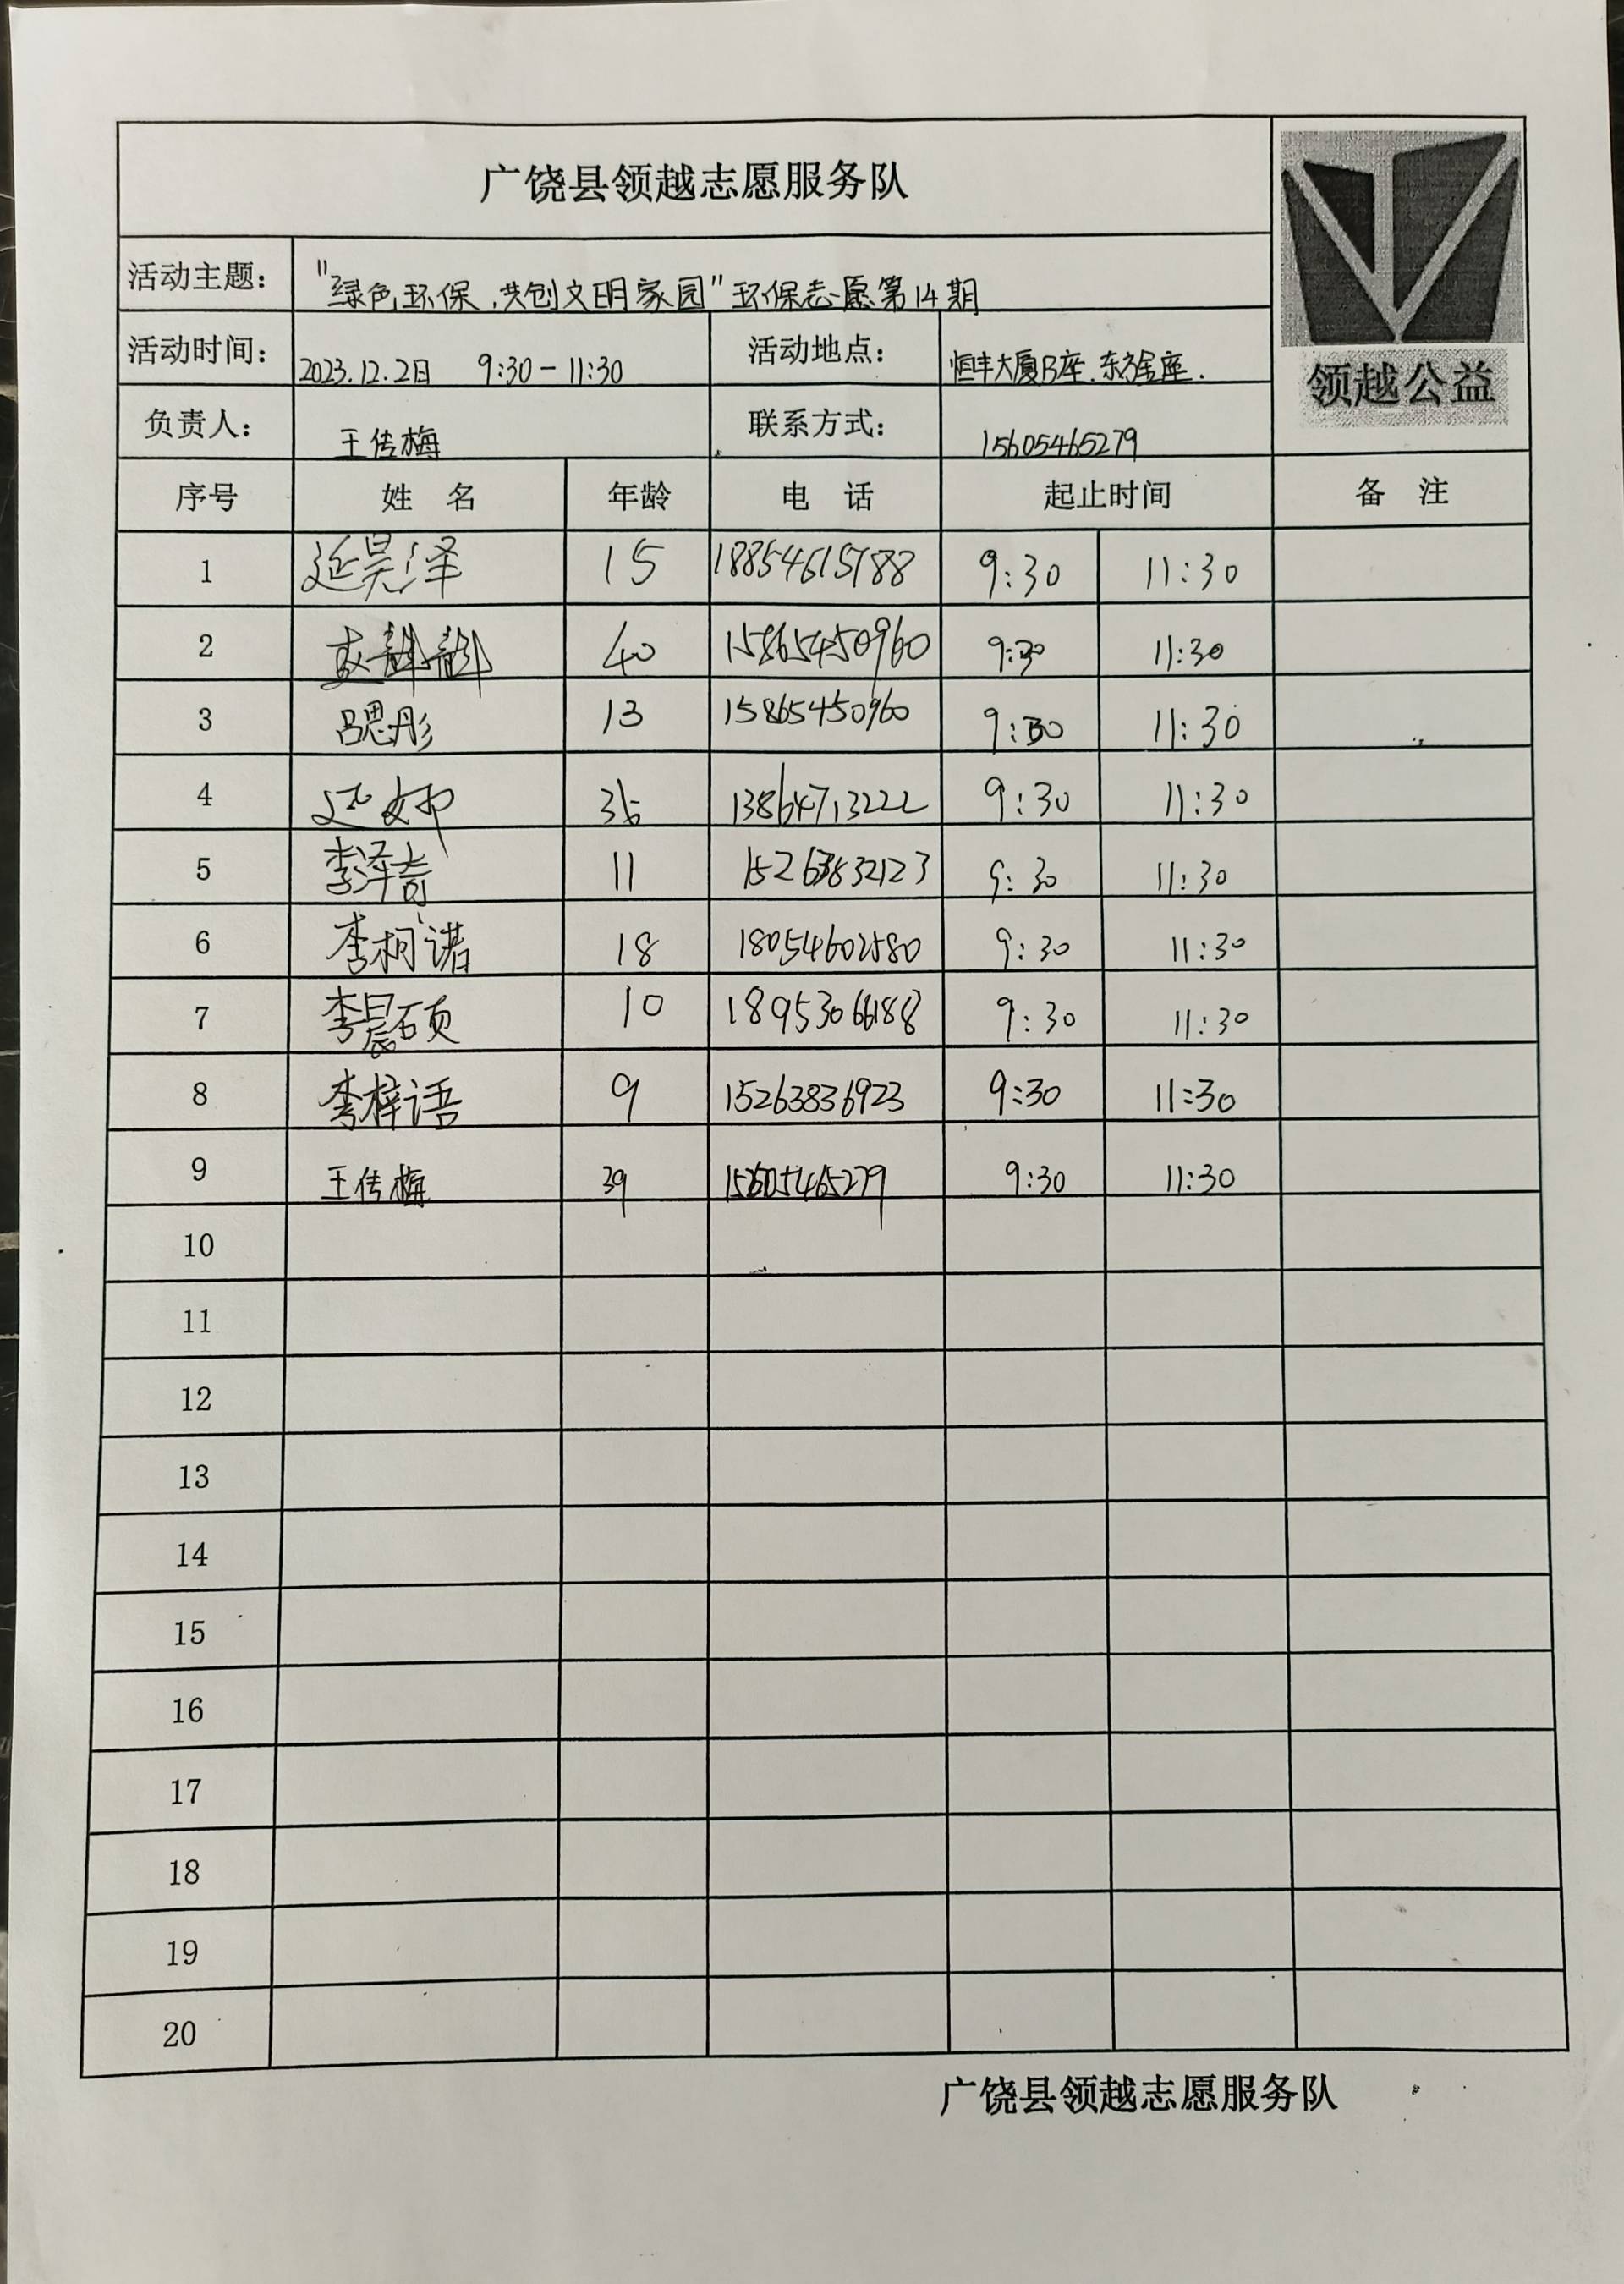 广饶县领越志愿服务队
活动主题： "绿色环保，共创文明家园"环保志愿第14期
活动时间： 2023.12.2日 9:30-11:30 活动地点： 恒丰大厦B座.东方金座.
领越公益
负责人： 王传梅 联系方式： 15605465279
序号 姓名 年龄 电话 起止时间 备注
1 延昊泽 15 18854615788 9:30 11:30
2 40 15865450960 9:30 11:30
3 吕思彤 13 15865450960 9:30 11:30
4 13864713222 9:30 11:30
5 李泽奇 11 9:30 11:30
6 李柯诺 18 18054602580 9:30 11:30
7 李晨硕 10 18953066188 9:30 11:30
8 李梓语 9 15263836923 9:30 11:30
9 王传梅 39 15605465279 9:30 11:30
10
11
12
13
14
15
16
17
18
19
20
广饶县领越志愿服务队